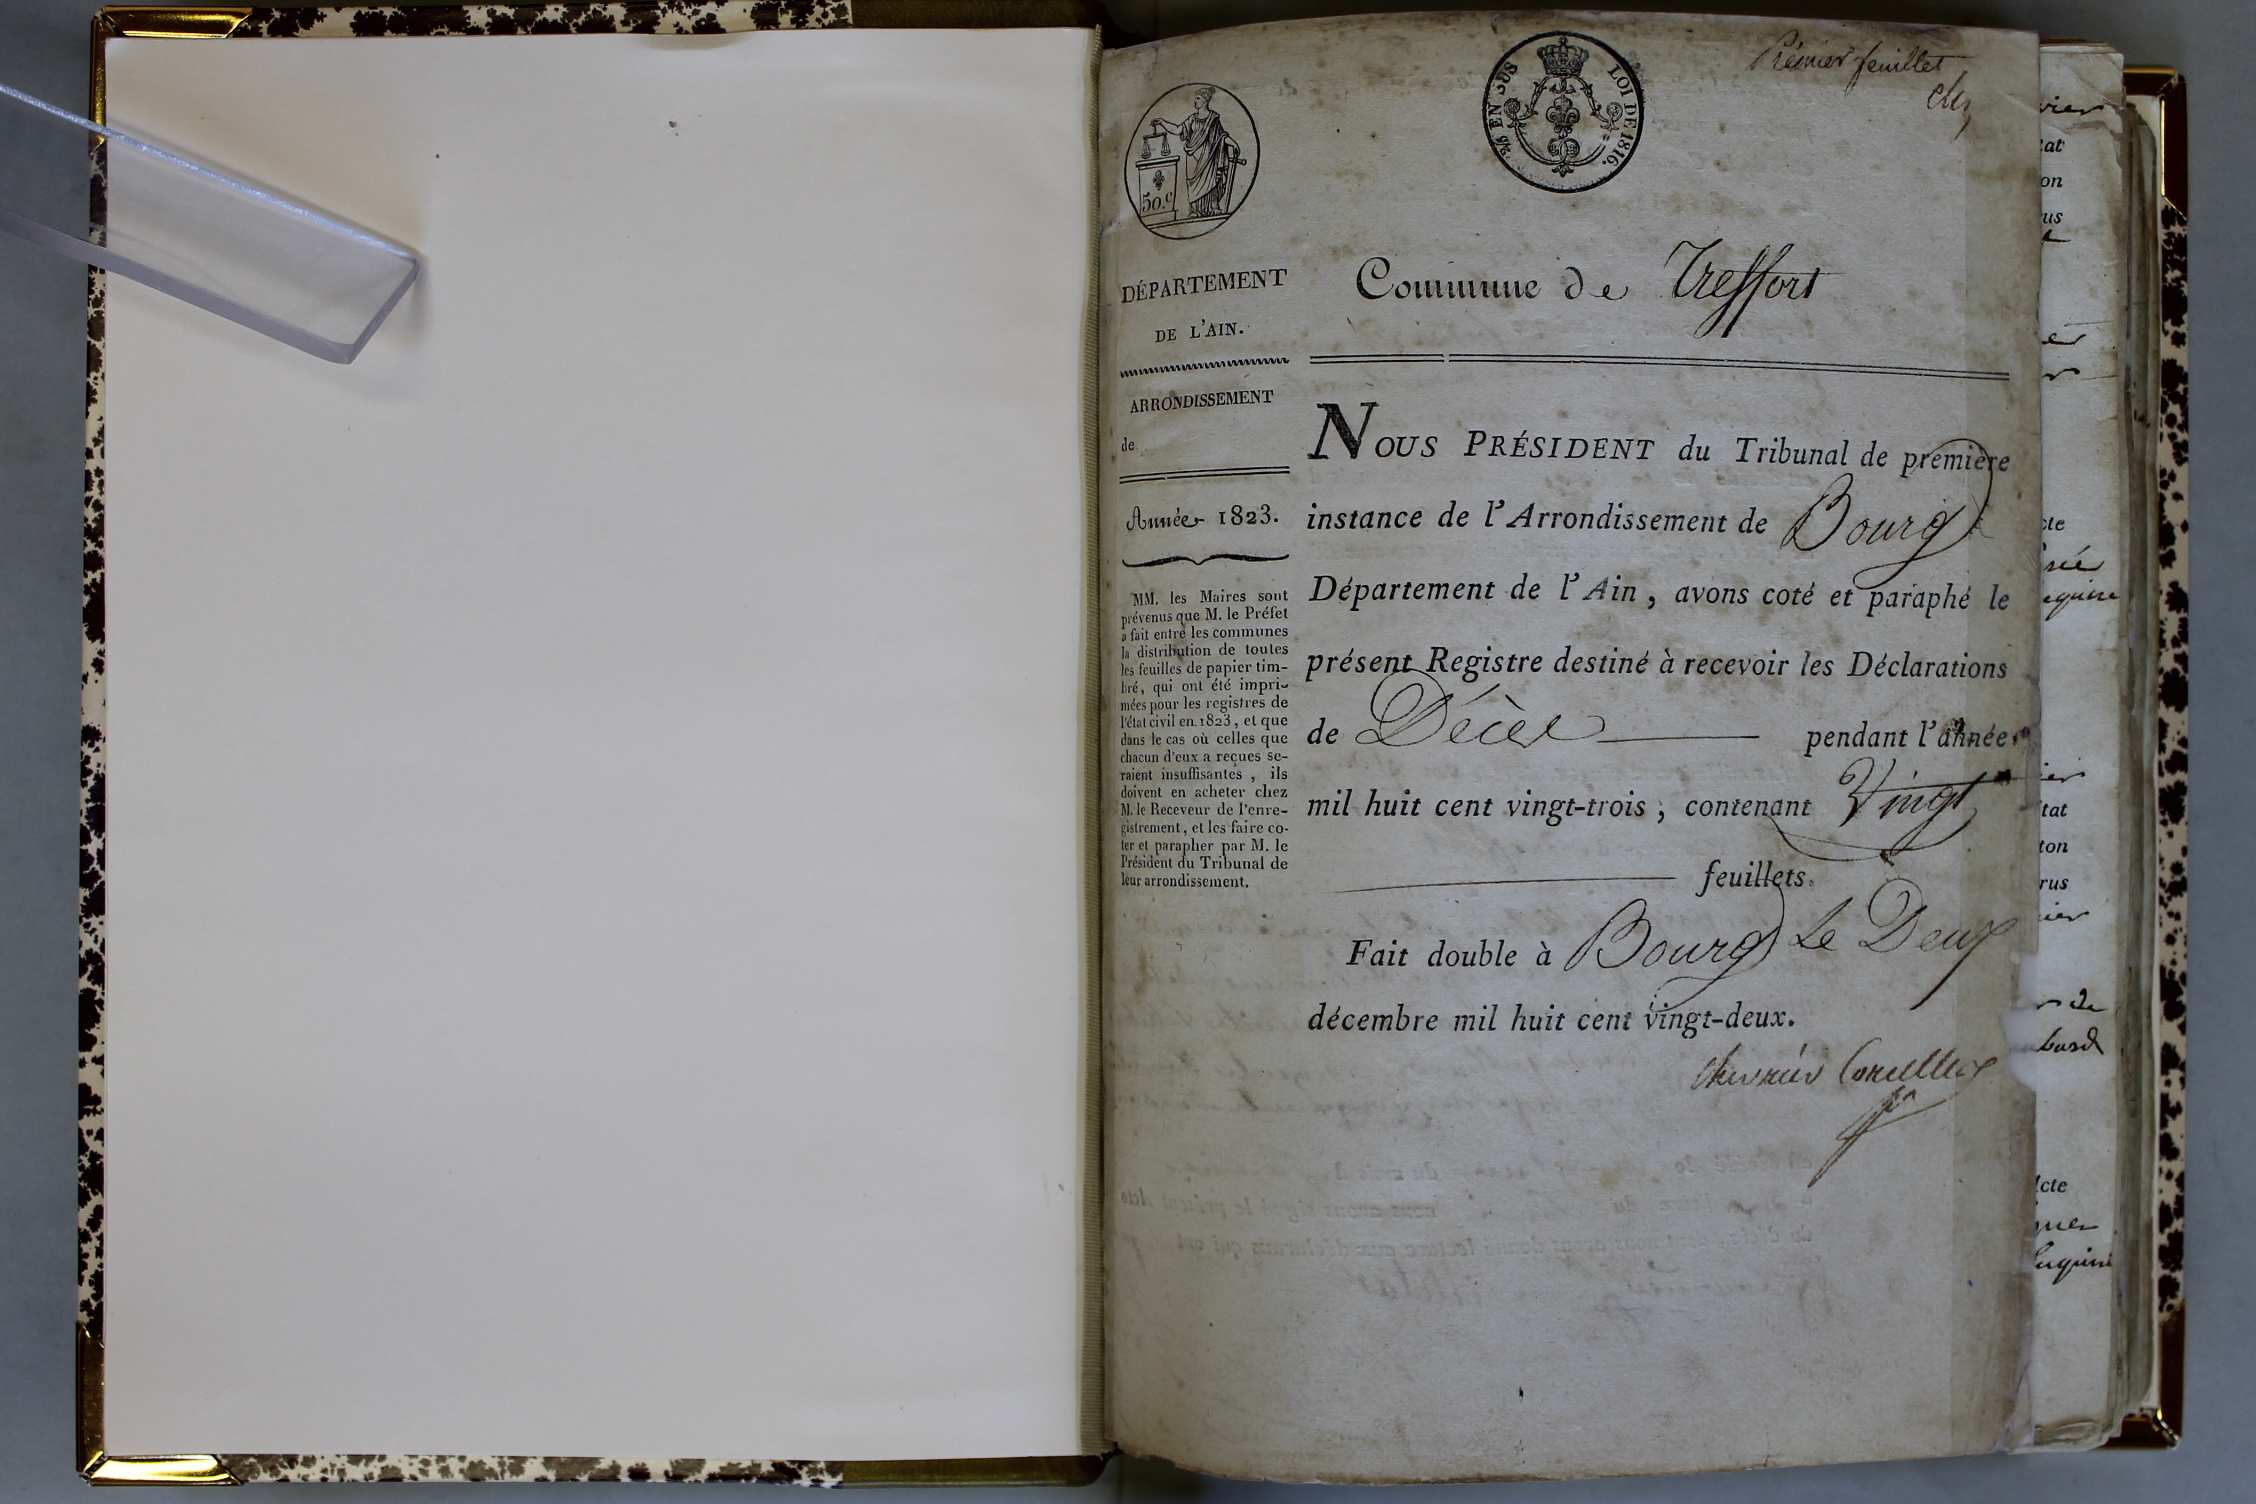 Prémier feuillet
EN SUS
LOI DE 1816.
50.c
DÉPARTEMENT
DE L'AIN.
ARRONDISSEMENT
de
Année 1823.
MM. les Maires sont
prévenus que M. le Préfet
a fait entre les communes
la distribution de toutes
les feuilles de papier tim-
bré, qui ont été impri-
mées pour les registres de
l'état civil en 1823, et que
dans le cas où celles que
chacun d'eux a reçues se-
raient insuffisantes, ils
doivent en acheter chez
M. le Receveur de l'enre-
gistrement, et les faire co-
ter et parapher par M. le
Président du Tribunal de
leur arrondissement.
Commune de Treffort
NOUS PRÉSIDENT du Tribunal de première
instance de l'Arrondissement de Bourg
Département de l'Ain, avons coté et paraphé le
présent Registre destiné à recevoir les Déclarations
de Décès pendant l'année
mil huit cent vingt-trois, contenant Vingt
feuillets.
Fait double à Bourg Le Deux
décembre mil huit cent vingt-deux.